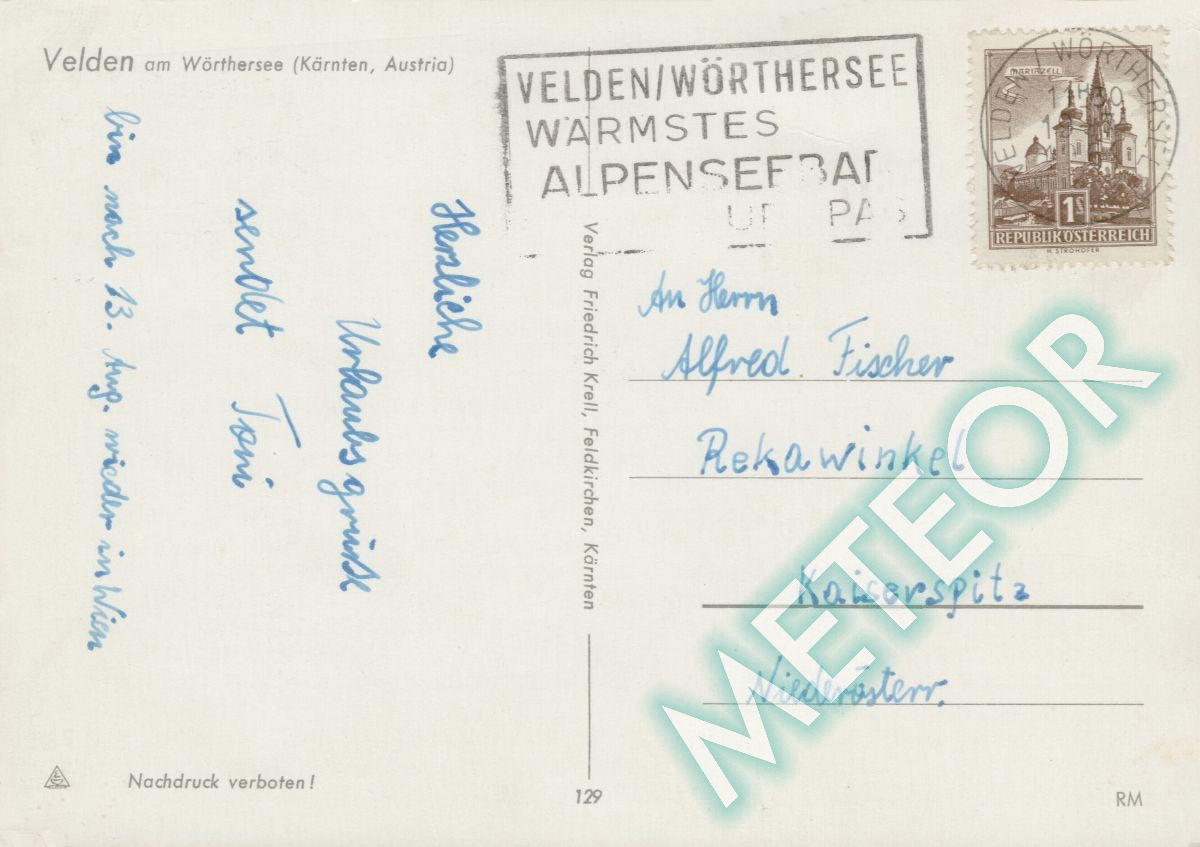 Velden am Wörthersee (Kärnten, Austria)
VELDEN/WÖRTHERSEE
WÄRMSTES
ALPENSEEBAD
MARIAZELL
1 S
REPUBLIK ÖSTERREICH
H. STROHOFER
VELDEN / WÖRTHERSEE
Herzliche
Urlaubsgrüße
sendet Toni
bin nach 13. Aug. wieder in Wien
Verlag Friedrich Krell, Feldkirchen, Kärnten
An Herrn
Alfred Fischer
Rekawinkel
Kaiserspitz
Niederösterr.
METEOR
Nachdruck verboten!
129
RM